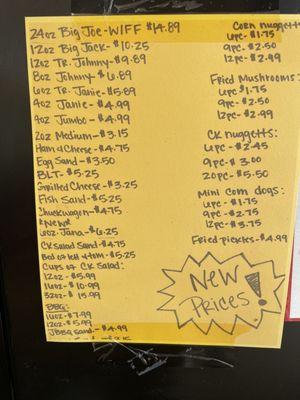 24oz Big Joe - W/FF $14.89
12oz Big Jack - $10.25
12oz TR. Johnny - $9.89
8oz Johnny - $6.89
6oz TR. Janie - $5.89
4oz Janie - $4.99
9oz Jumbo - $4.99
2oz Medium - $3.15
Ham & Cheese - $4.75
Egg Sand - $3.50
BLT - $5.25
Grilled Cheese - $3.25
Fish Sand - $5.25
Chuckwagon - $4.75
6oz Jana - $6.25
CK Salad Sand - $4.75
Bed of lett & tom - $5.25
Cups of CK Salad:
12oz - $5.99
16oz - $10.99
32oz - $15.99
BBQ:
16oz - $7.99
12oz - $5.99
JBBQ Sand - $4.99
Corn nuggets
6pc - $1.75
9pc - $2.50
12pc - $2.99
Fried Mushrooms:
6pc $1.75
9pc - $2.50
12pc - $2.99
CK nuggets:
6pc - $2.45
9pc - $3.00
20pc - $5.50
Mini Corn dogs:
6pc - $1.75
9pc - $2.75
12pc - $3.75
Fried pickles - $4.99
NEW
PRICES!